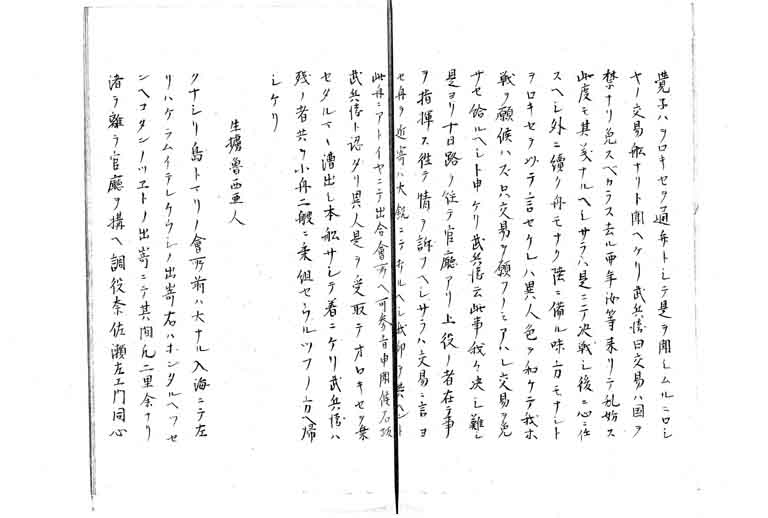 覚予ハヲロキセヲ通弁トシテ是ヲ聞シムルニロシ
ヤノ交易舩ナリト聞ヘケリ武兵倍曰交易ハ国ヲ
禁ナリ免スベカラス去ル酉年汝等来リテ乱妨ス
此度モ其義ナルヘシサラハ是ニテ決戦シ後ニ心ニ任
スヘシ外ニ續ク舟モナク陸ニ備ル味方モナシト
ヲロキセヲ以テ言セケレハ異人色ヲ和ケテ我ホ
戦ヲ願候ハズ只交易ヲ願フノミアハレ交易ヲ免
サセ給ルヘシト申ケリ武兵倍云此事我々決シ難シ
是ヨリ十日路ノ往テ官廳アリ上役ノ者在テ事
ヲ指揮ス往テ情ヲ訴フヘシサラハ交易ニ言ヨ
セ舟ヲ近寄ハ大鋭ニテ
此舟ニアトイヤニテ出合會所ヘ可参旨申聞候
武兵倍ト認タリ異人是ヲ受取テオロキセヲ乗
セタルマヽ漕出し本舩サシテ着ニケリ武兵倍ハ
残ノ者共ヲ小舟二艘ニ乗組セウルツフノ方ヘ帰
シケリ
生擄魯西亜人
クナシリ島トマリノ會所前ハ大ナル入海ニテ左
リハケラムイテレケウシノ出嵜右ハホンタルヘツセ
ンヘコタンノツエトノ出嵜ニテ其間凡二里余ナリ
渚ヲ離テ官廳ヲ構ヘ調役奈佐瀬左エ門同心